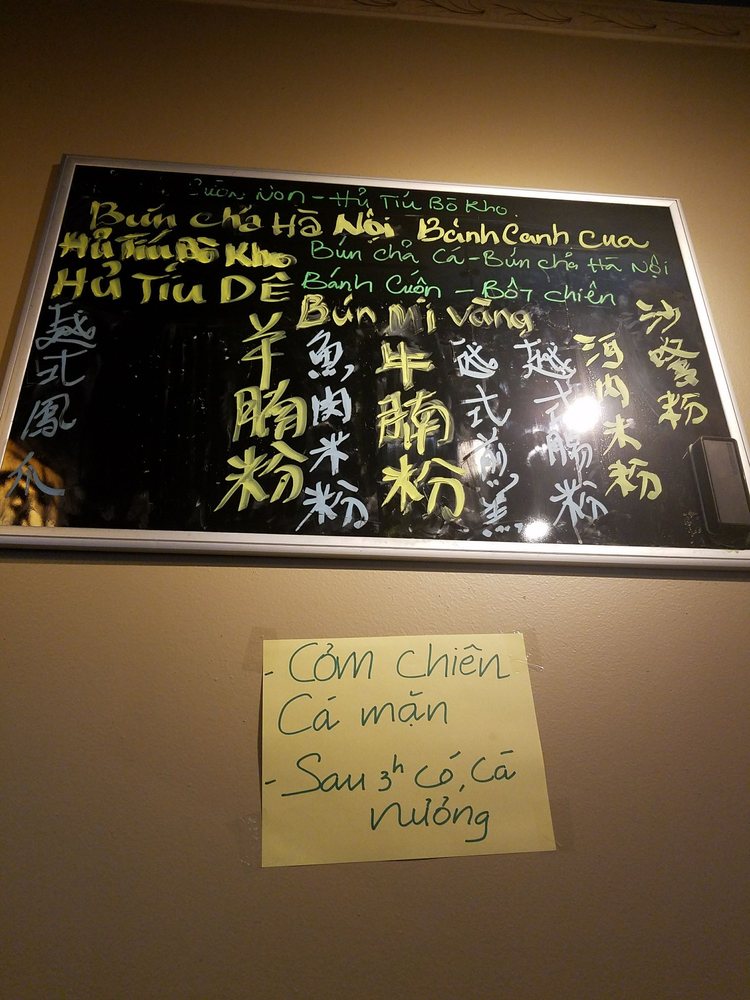 Non - Hủ Tiú Bò Kho.
Bún chả Hà Nội Bánh Canh Cua
Hủ Tiú Bò Kho Bún chả Cá - Bún chả Hà Nội
Hủ Tiú DÊ Bánh Cuốn - Bột chiên
Bún Mị vàng
越式鳳爪
羊腩粉
魚肉米粉
牛腩粉
越式煎
越式腸粉
河内米粉
沙蟹粉
- Cơm chiên
Cá mặn
- Sau 3h có, Cá
nướng